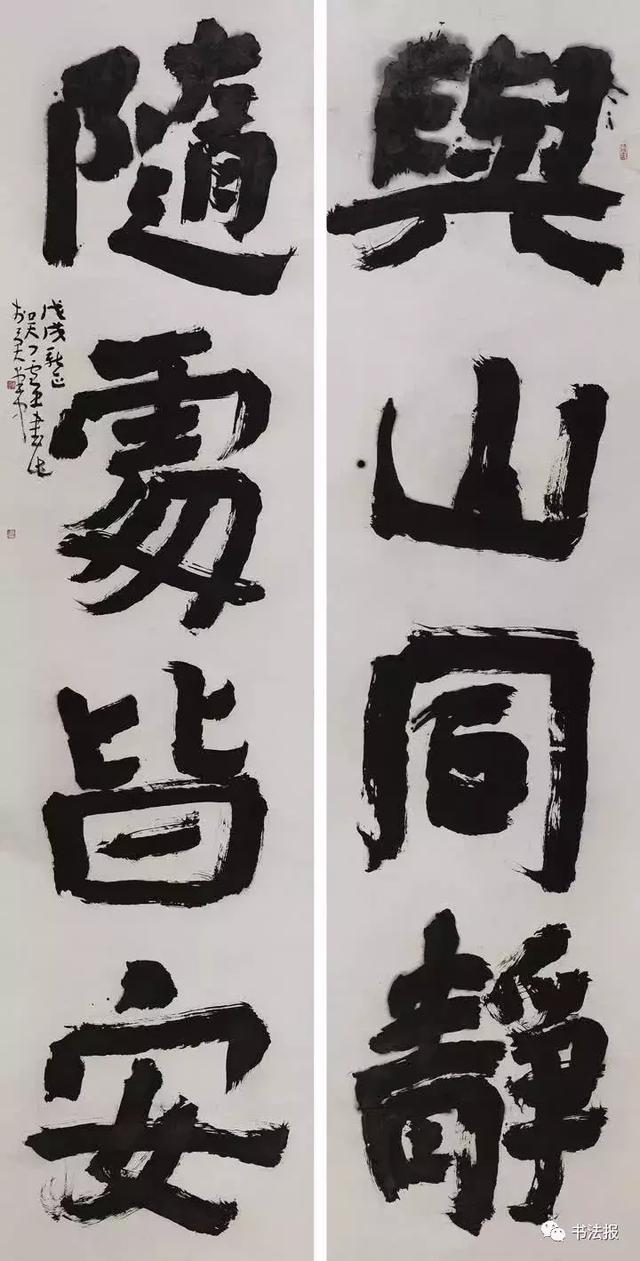 與山同靜
隨處皆安
戊戌新正
书法报